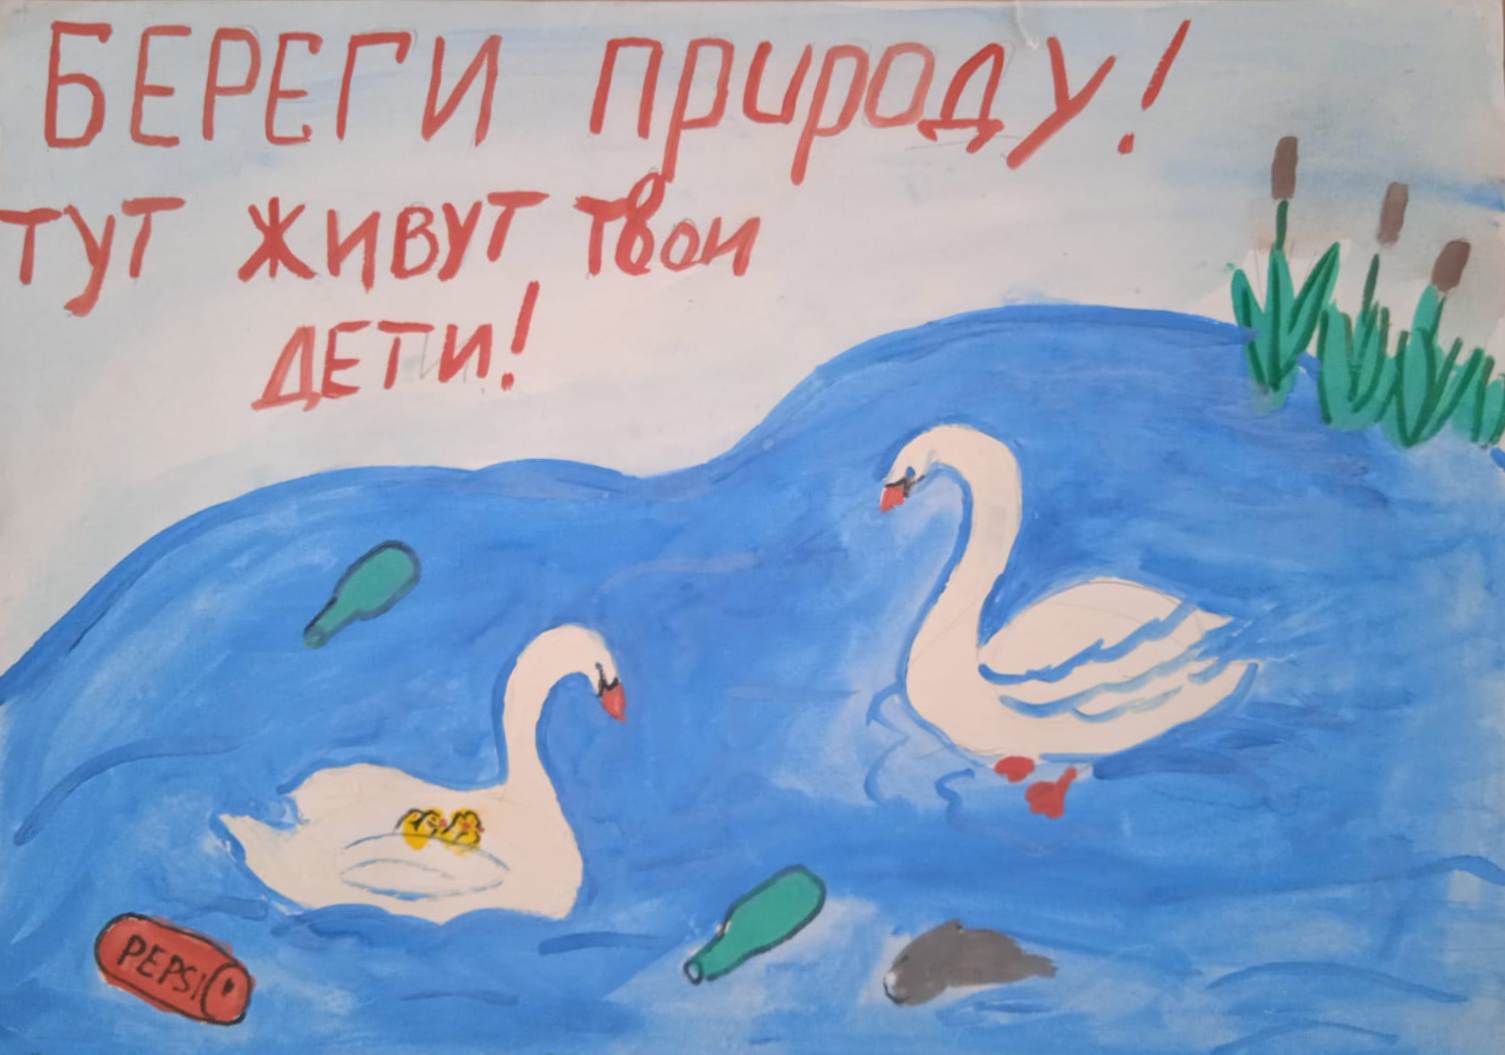 БЕРЕГИ природу!
тут живут твои
ДЕТИ!
PEPSI